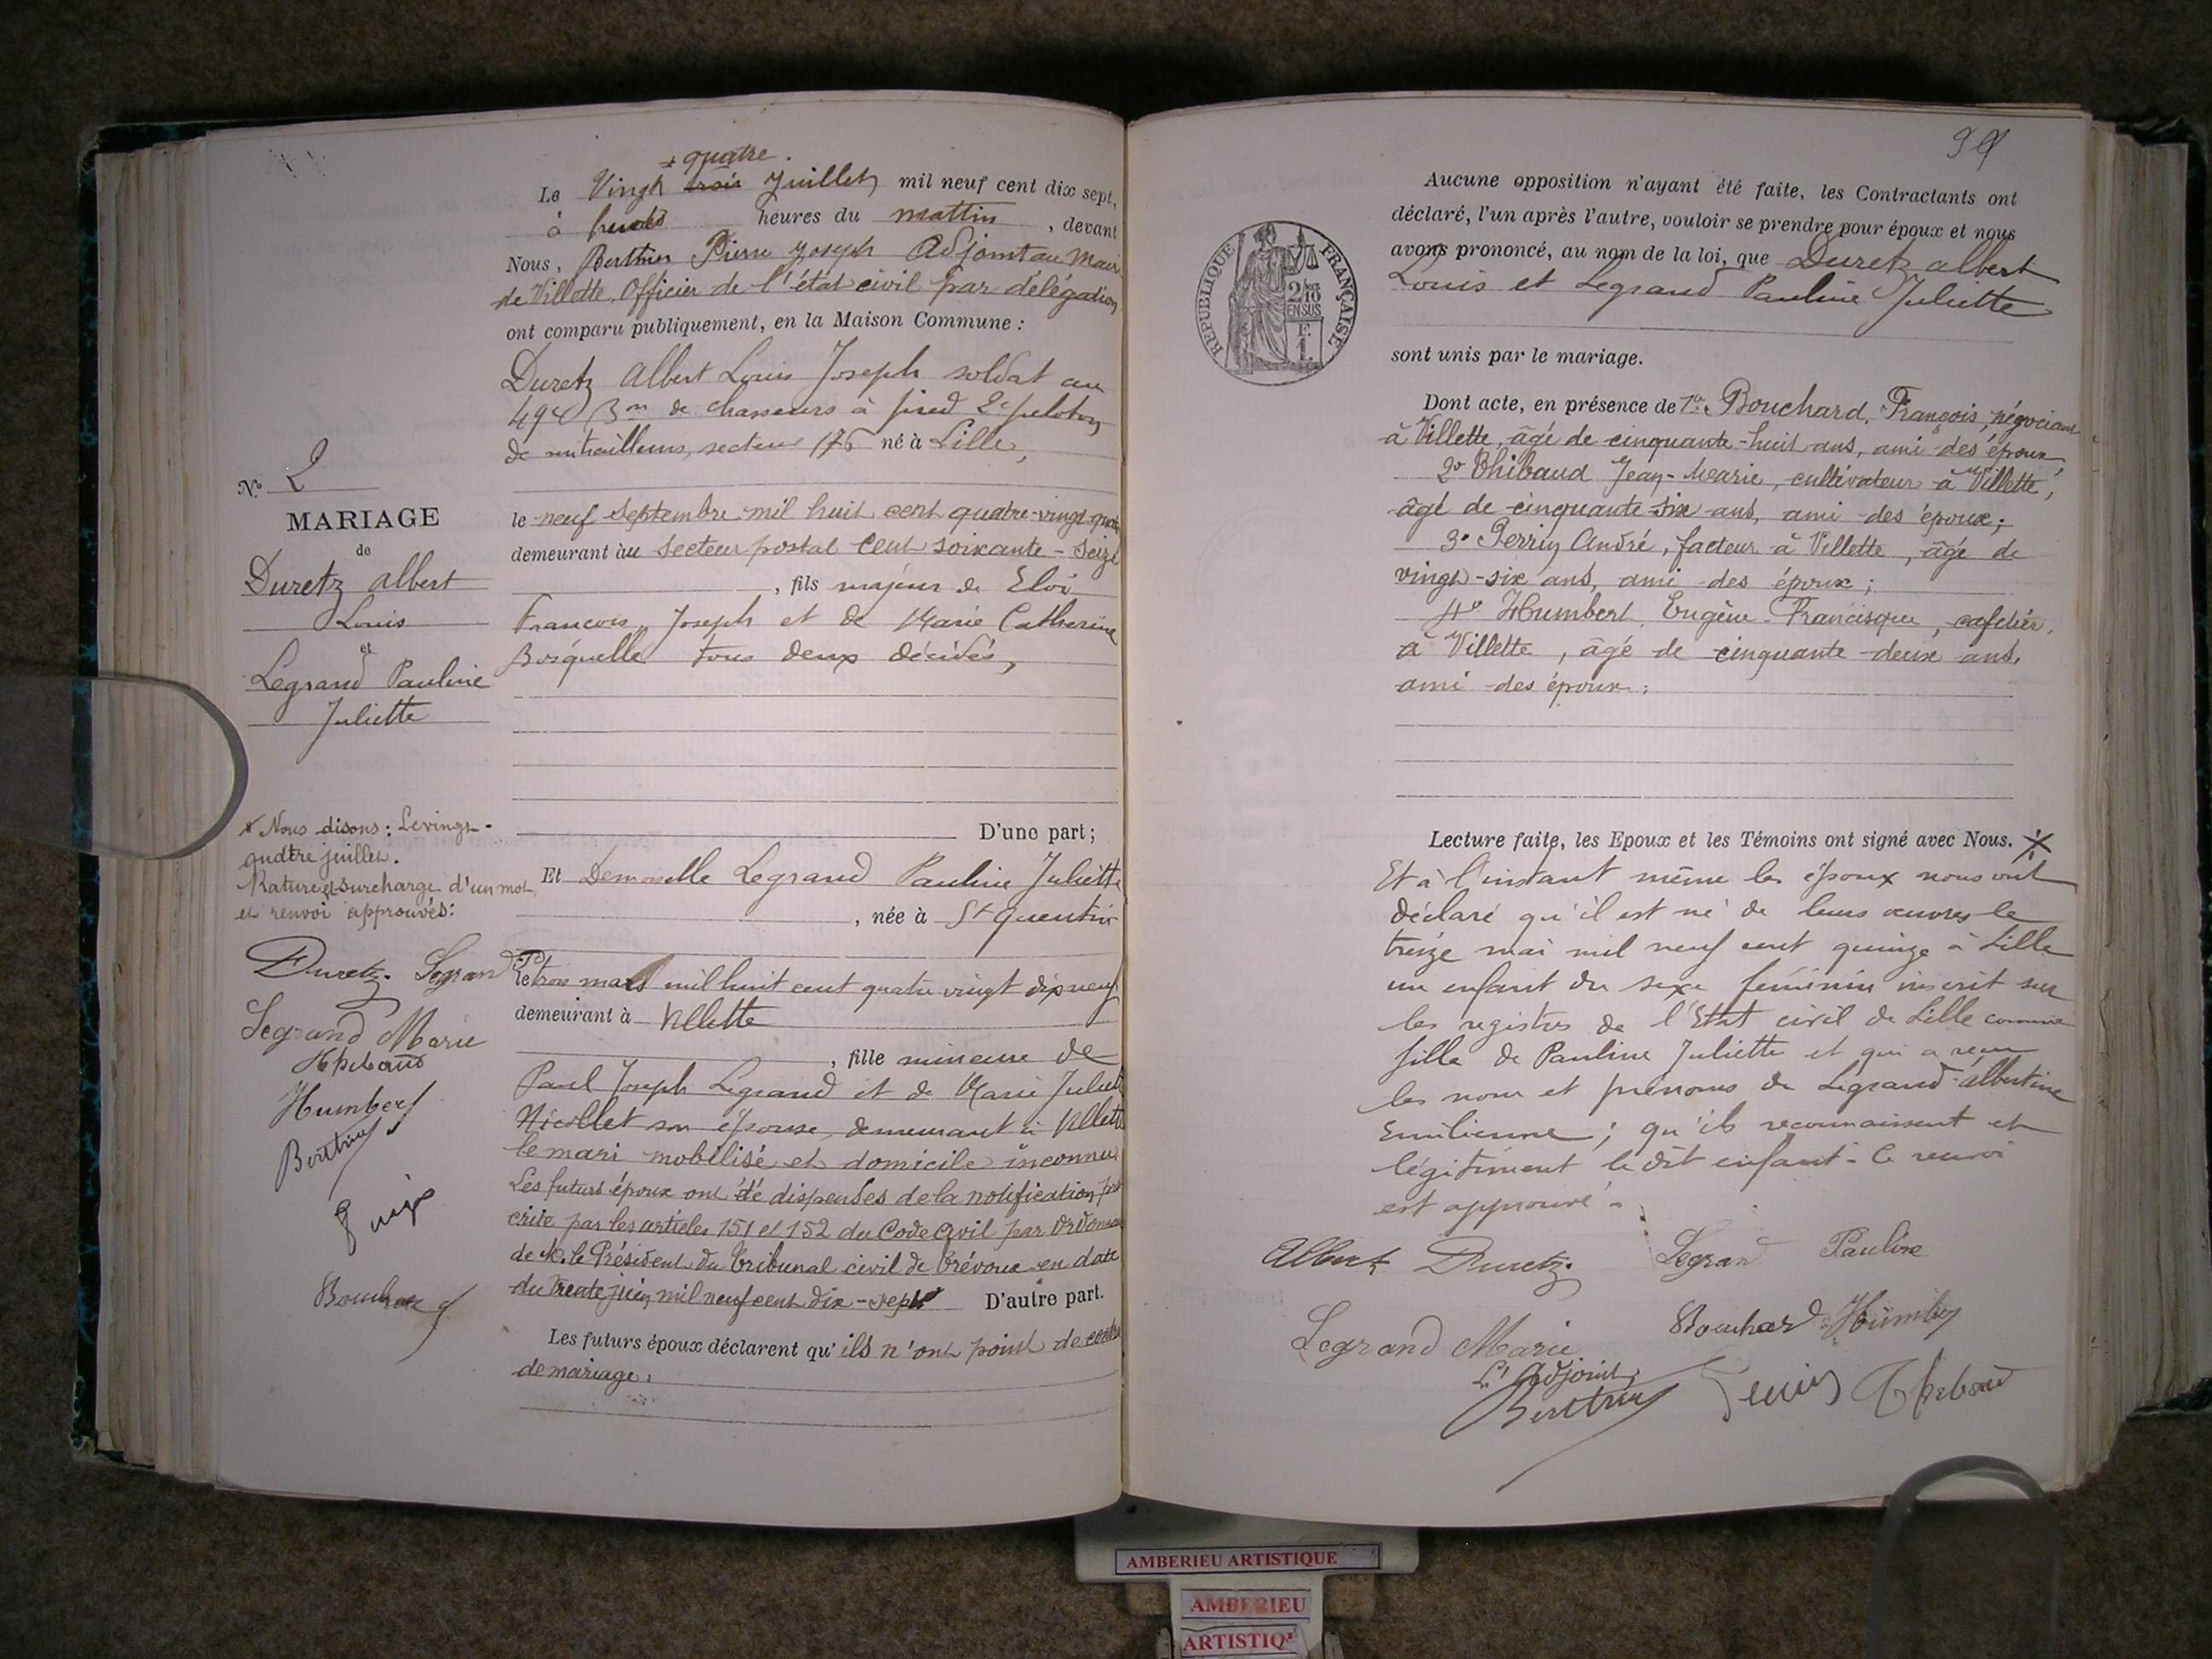 + quatre.
Le Vingt trois Juillet mil neuf cent dix sept,
à heures du mattin, devant
Nous, Berthier Pierre Joseph Adjoint au Maire
de Villette, Officier de l'état civil par délégation,
ont comparu publiquement, en la Maison Commune :
Duretz Albert Louis Joseph soldat au
49e Bon de chasseurs à pied 2e peloton
de mitrailleurs, secteur 176 né à Lille,
le neuf Septembre mil huit cent quatre-vingt
demeurant au Secteur postal Cent soixante-Seize
, fils majeur de Eloi
François Joseph et de Marie Catherine
Bosquelle tous deux décédés,
D'une part;
Et Demoiselle Legrand Pauline Juliette
, née à St Quentin
le trois mars mil huit cent quatre vingt dix neuf
demeurant à Villette
, fille mineure de
Paul Joseph Legrand et de Marie Juliette
Nicollet son épouse, demeurant à Villette
le mari mobilisé et domicile inconnu.
Les futurs époux ont été dispensés de la notification pres
crite par les articles 151 et 152 du Code Civil par ordonnance
de M. le Président du Tribunal civil de Trévoux en date
du trente juin mil neuf cent dix-sept D'autre part.
Les futurs époux déclarent qu'ils n'ont point de contrat
de mariage.
No 2
MARIAGE
de
Duretz Albert
Louis
et
Legrand Pauline
Juliette
+ Nous disons : Le vingt-
quatre juillet.
Rature et surcharge d'un mot
et renvoi approuvés :
Duretz. Legrand
Legrand Marie
Thibaud
Humbert
Berthier
Bouchard
99
Aucune opposition n'ayant été faite, les Contractants ont
déclaré, l'un après l'autre, vouloir se prendre pour époux et nous
avons prononcé, au nom de la loi, que Duretz Albert
Louis et Legrand Pauline Juliette
sont unis par le mariage.
REPUBLIQUE FRANÇAISE
2/10
EN SUS
F.
1.
Dont acte, en présence de 1o Bouchard, François, négociant
à Villette, âgé de cinquante-huit ans, ami des époux,
2o Thibaud Jean-Marie, cultivateur à Villette,
âgé de cinquante-six ans, ami des époux;
3o Perrin André, facteur à Villette, âgé de
vingt-six ans, ami des époux;
4o Humbert Eugène Francisque, cafetier,
à Villette, âgé de cinquante-deux ans,
ami des époux.
Lecture faite, les Epoux et les Témoins ont signé avec Nous. ※
Et à l'instant même les époux nous ont
déclaré qu'il est né de leurs œuvres le
treize mai mil neuf cent quinze à Lille
un enfant du sexe féminin inscrit sur
les registres de l'Etat civil de Lille comme
fille de Pauline Juliette et qui a reçu
les nom et prénoms de Legrand Albertine
Emilienne ; qu'ils reconnaissent et
légitiment le dit enfant - Ce renvoi
est approuvé -
Albert Duretz. Legrand Pauline
Legrand Marie Bouchard Humbert
L'Adjoint,
Berthier Perrin Thibaud
AMBERIEU ARTISTIQUE
AMBERIEU
ARTISTIQ